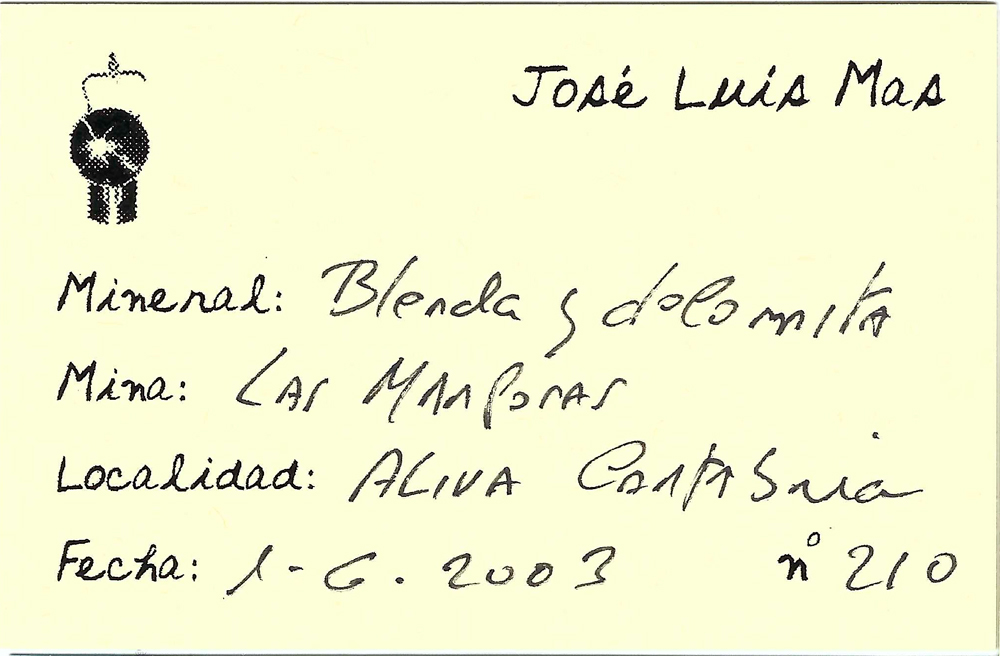 José Luis Mas
Mineral: Blenda y dolomita
Mina: Las Manforas
Localidad: ALIVA Cantabria
Fecha: 1-6.2003 nº 210